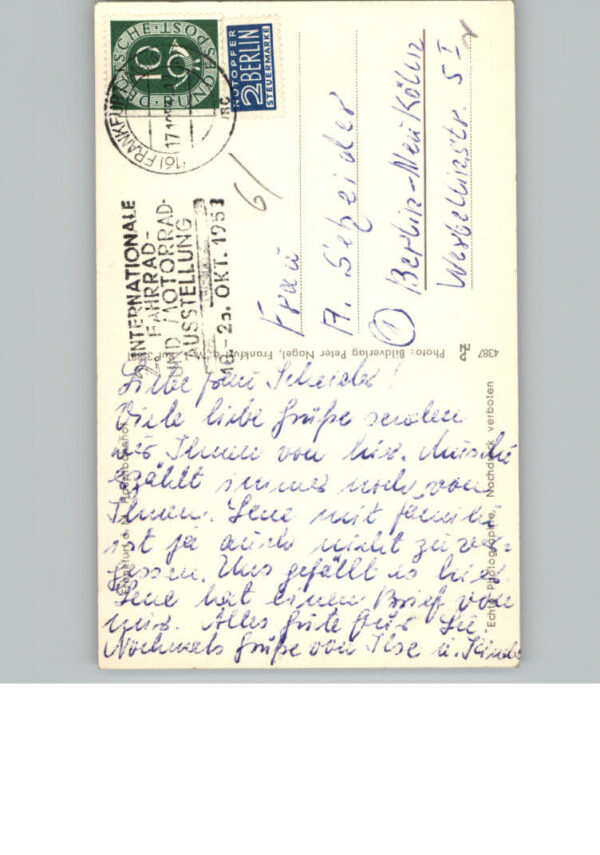 DEUTSCHE BUNDESPOST
10
NOTOPFER
2 BERLIN
STEUERMARKE
(16) FRANKFURT
17.10
INTERNATIONALE
FAHRRAD-
UND MOTORRAD-
AUSSTELLUNG
OKT. 1953
6/
Frau
A. Scheider
(1) Berlin-Neukölln
str. 5 I
4387
Photo: Bildverlag Peter Nagel, Frankfurt a. M.
Echte Photographie, Nachdruck verboten
Frankfurt a. M.
Liebe Frau Scheider!
Viele liebe Grüße senden
wir Ihnen von hier.
erzählt immer noch von
Ihnen. Lene mit Familie
ist ja auch nicht zu ver-
gessen. Uns gefällt es hier
Lene hat einen Brief von
mir. Alles Gute für Sie.
Nochmals Grüße von Ilse u. Kinder